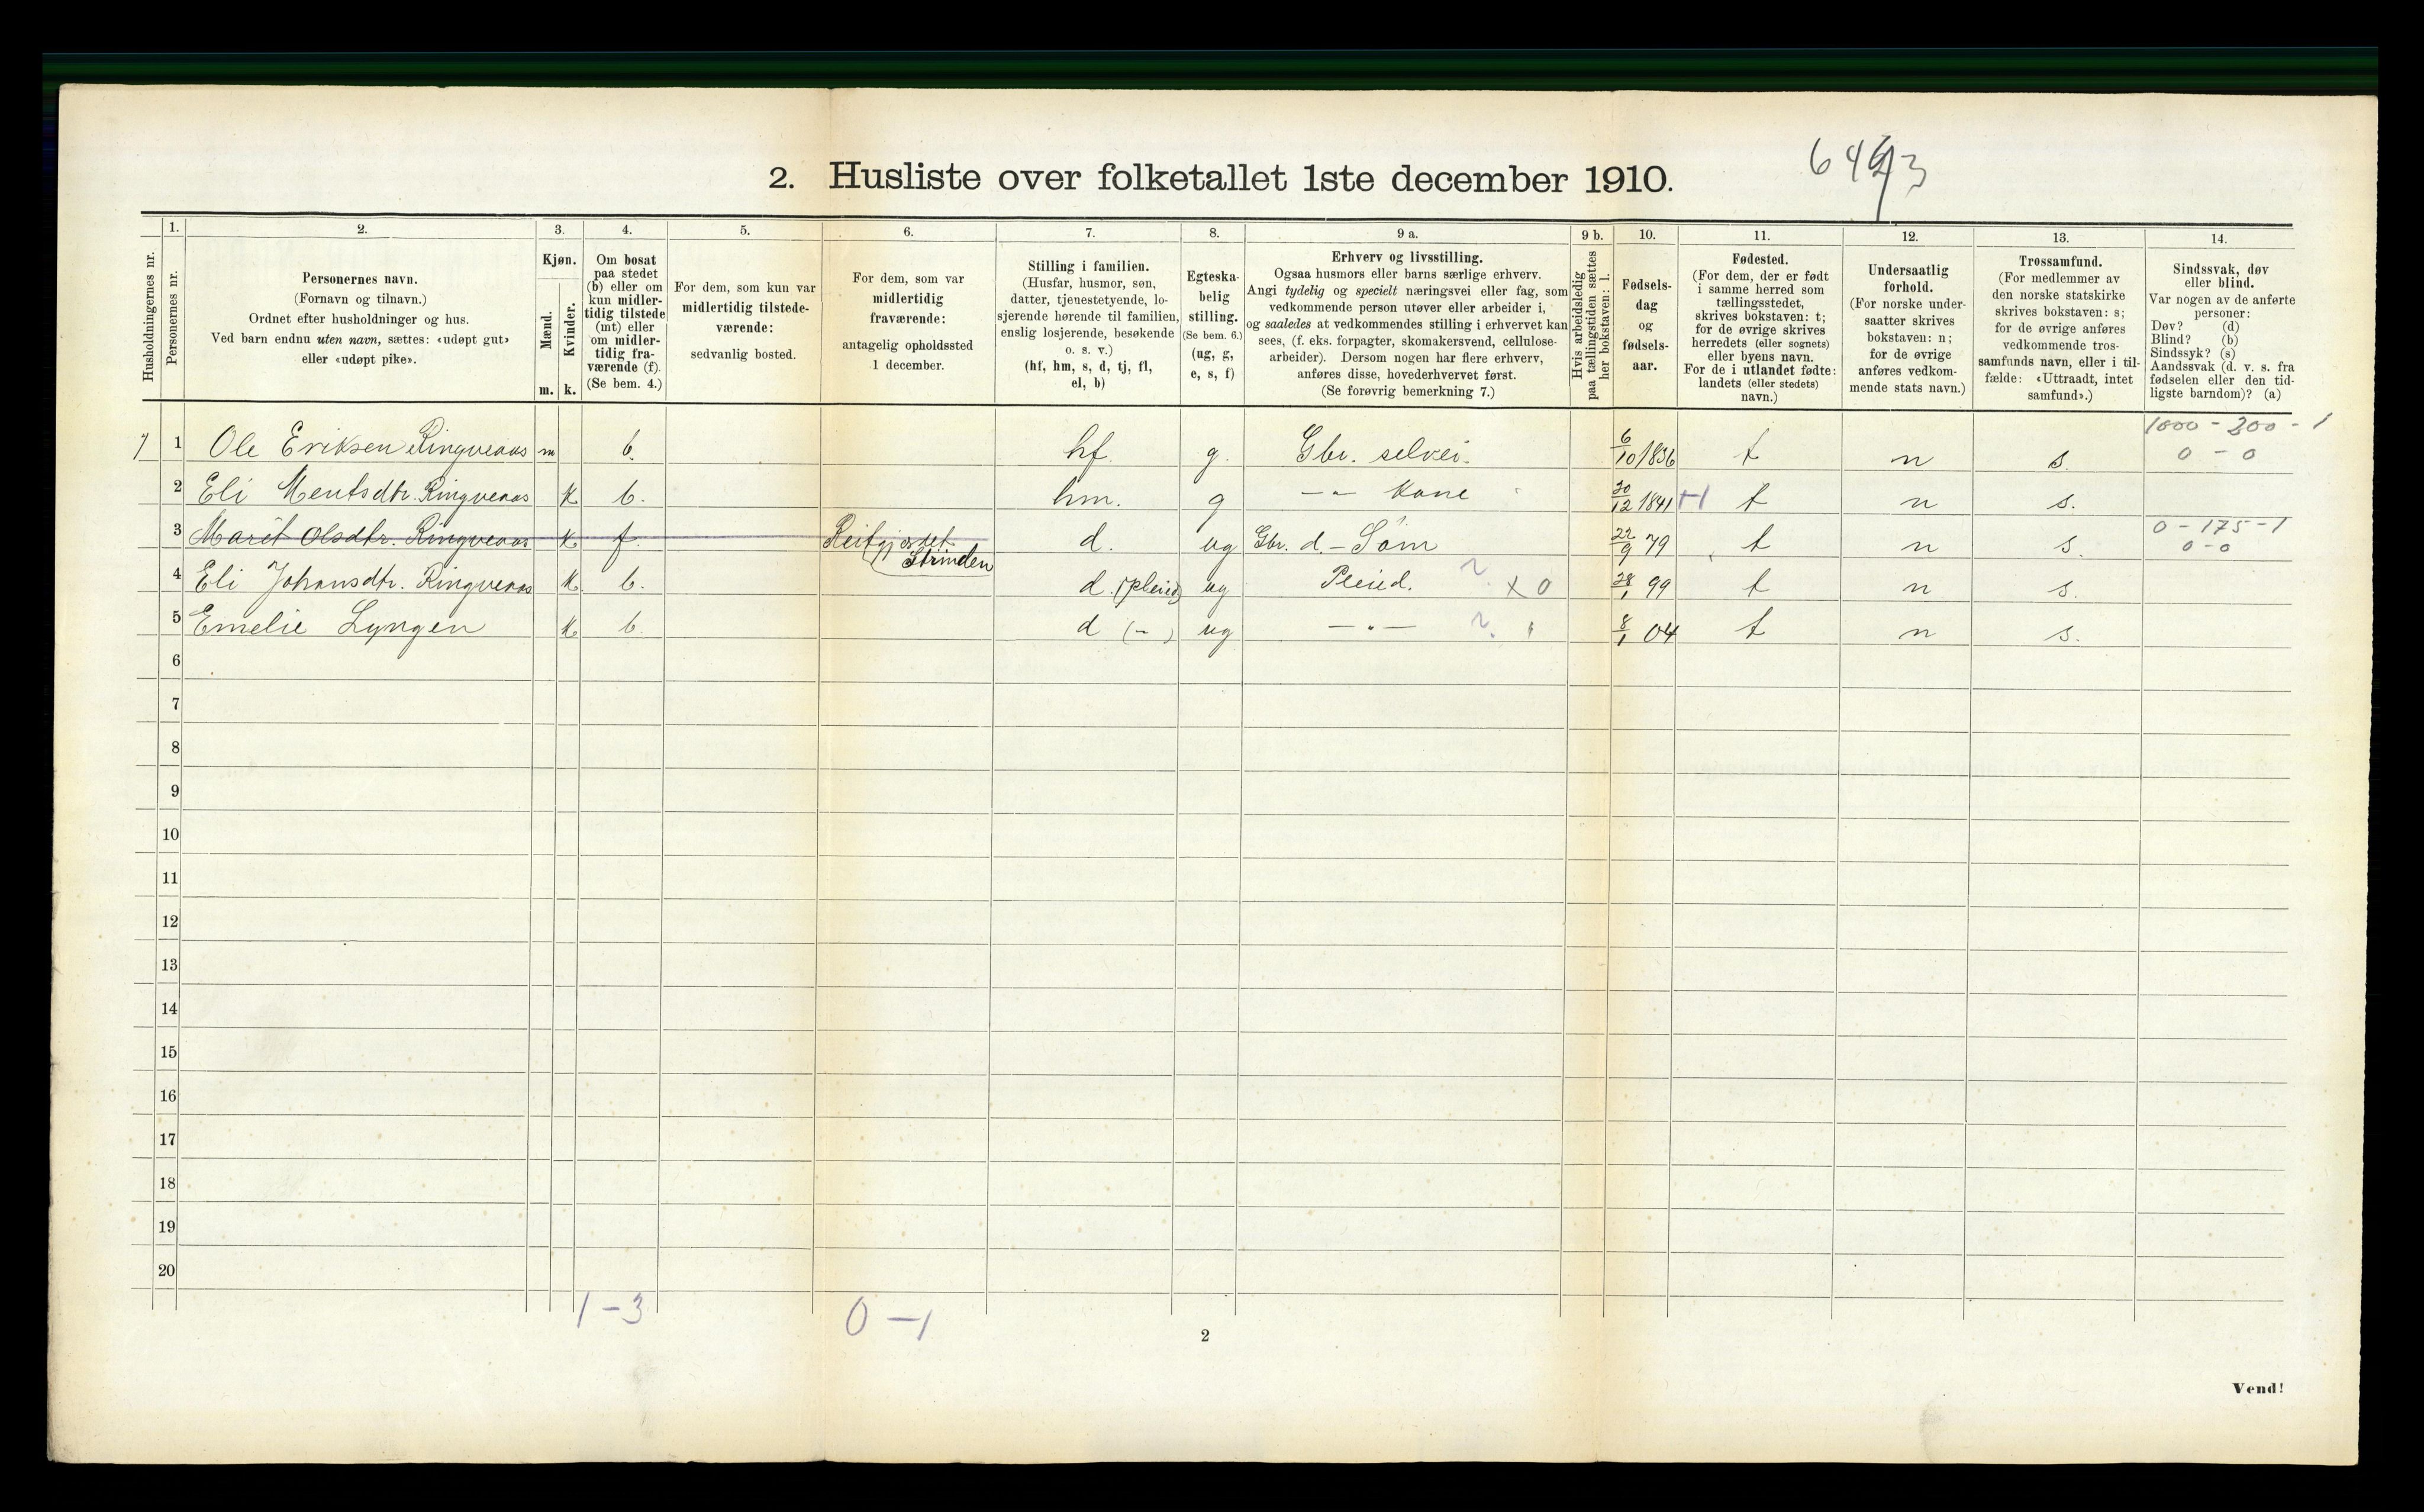 2. Husliste over folketallet 1ste december 1910.
Husholdningernes nr.
1.
Personernes nr.
2.
Personernes navn.
(Fornavn og tilnavn.)
Ordnet efter husholdninger og hus.
Ved barn endnu uten navn, sættes: «udøpt gut»
eller «udøpt pike».
3.
Kjøn.
Mænd.
Kvinder.
m. k.
4.
Om bosat
paa stedet
(b) eller om
kun midler-
tidig tilstede
(mt) eller
om midler-
tidig fra-
værende (f).
(Se bem. 4.)
5.
For dem, som kun var
midlertidig tilstede-
værende:
sedvanlig bosted.
6.
For dem, som var
midlertidig
fraværende:
antagelig opholdssted
1 december.
7.
Stilling i familien.
(Husfar, husmor, søn,
datter, tjenestetyende, lo-
sjerende hørende til familien,
enslig losjerende, besøkende
o. s. v.)
(hf, hm, s, d, tj, fl,
el, b)
8.
Egteska-
belig
stilling.
(Se bem. 6.)
(ug, g,
e, s, f)
9 a.
Erhverv og livsstilling.
Ogsaa husmors eller barns særlige erhverv.
Angi tydelig og specielt næringsvei eller fag, som
vedkommende person utøver eller arbeider i,
og saaledes at vedkommendes stilling i erhvervet kan
sees, (f. eks. forpagter, skomakersvend, cellulose-
arbeider). Dersom nogen har flere erhverv,
anføres disse, hovederhvervet først.
(Se forøvrig bemerkning 7.)
9 b.
Hvis arbeidsledig
paa tællingstiden sættes
her bokstaven: l.
10.
Fødsels-
dag
og
fødsels-
aar.
11.
Fødested.
(For dem, der er født
i samme herred som
tællingsstedet,
skrives bokstaven: t;
for de øvrige skrives
herredets (eller sognets)
eller byens navn.
For de i utlandet fødte:
landets (eller stedets)
navn.)
12.
Undersaatlig
forhold.
(For norske under-
saatter skrives
bokstaven: n;
for de øvrige
anføres vedkom-
mende stats navn.)
13.
Trossamfund.
(For medlemmer av
den norske statskirke
skrives bokstaven: s;
for de øvrige anføres
vedkommende tros-
samfunds navn, eller i til-
fælde: «Uttraadt, intet
samfund».)
14.
Sindssvak, døv
eller blind.
Var nogen av de anførte
personer:
Døv? (d)
Blind? (b)
Sindssyk? (s)
Aandssvak (d. v. s. fra
fødselen eller den tid-
ligste barndom)? (a)
1000 - 200 - 1
1 Ole Eriksen Ringveaas m b. hf g. Gbr. selvei. 6/10 1836 t n s. 0 - 0
2 Eli Mentsdtr. Ringveaas k b. hm. g -"- Kone 20/12 1841 t n s.
0 - 175 - 1
3 Marit Olsdtr. Ringveaas k f. Reitgjerdet Strinden d. ug Gbr. d. - Søm 22/9 79 t n s. 0-0
4 Eli Johansdtr. Ringveaas k b. d. (pleied) ug Pleied. x 0 28/1 99 t n s.
5 Emelie Lyngen k b d (-) ug -"- 8/1 04 t n s.
6
7
8
9
10
11
12
13
14
15
16
17
18
19
20
1 - 3
0 - 1
2
Vend!